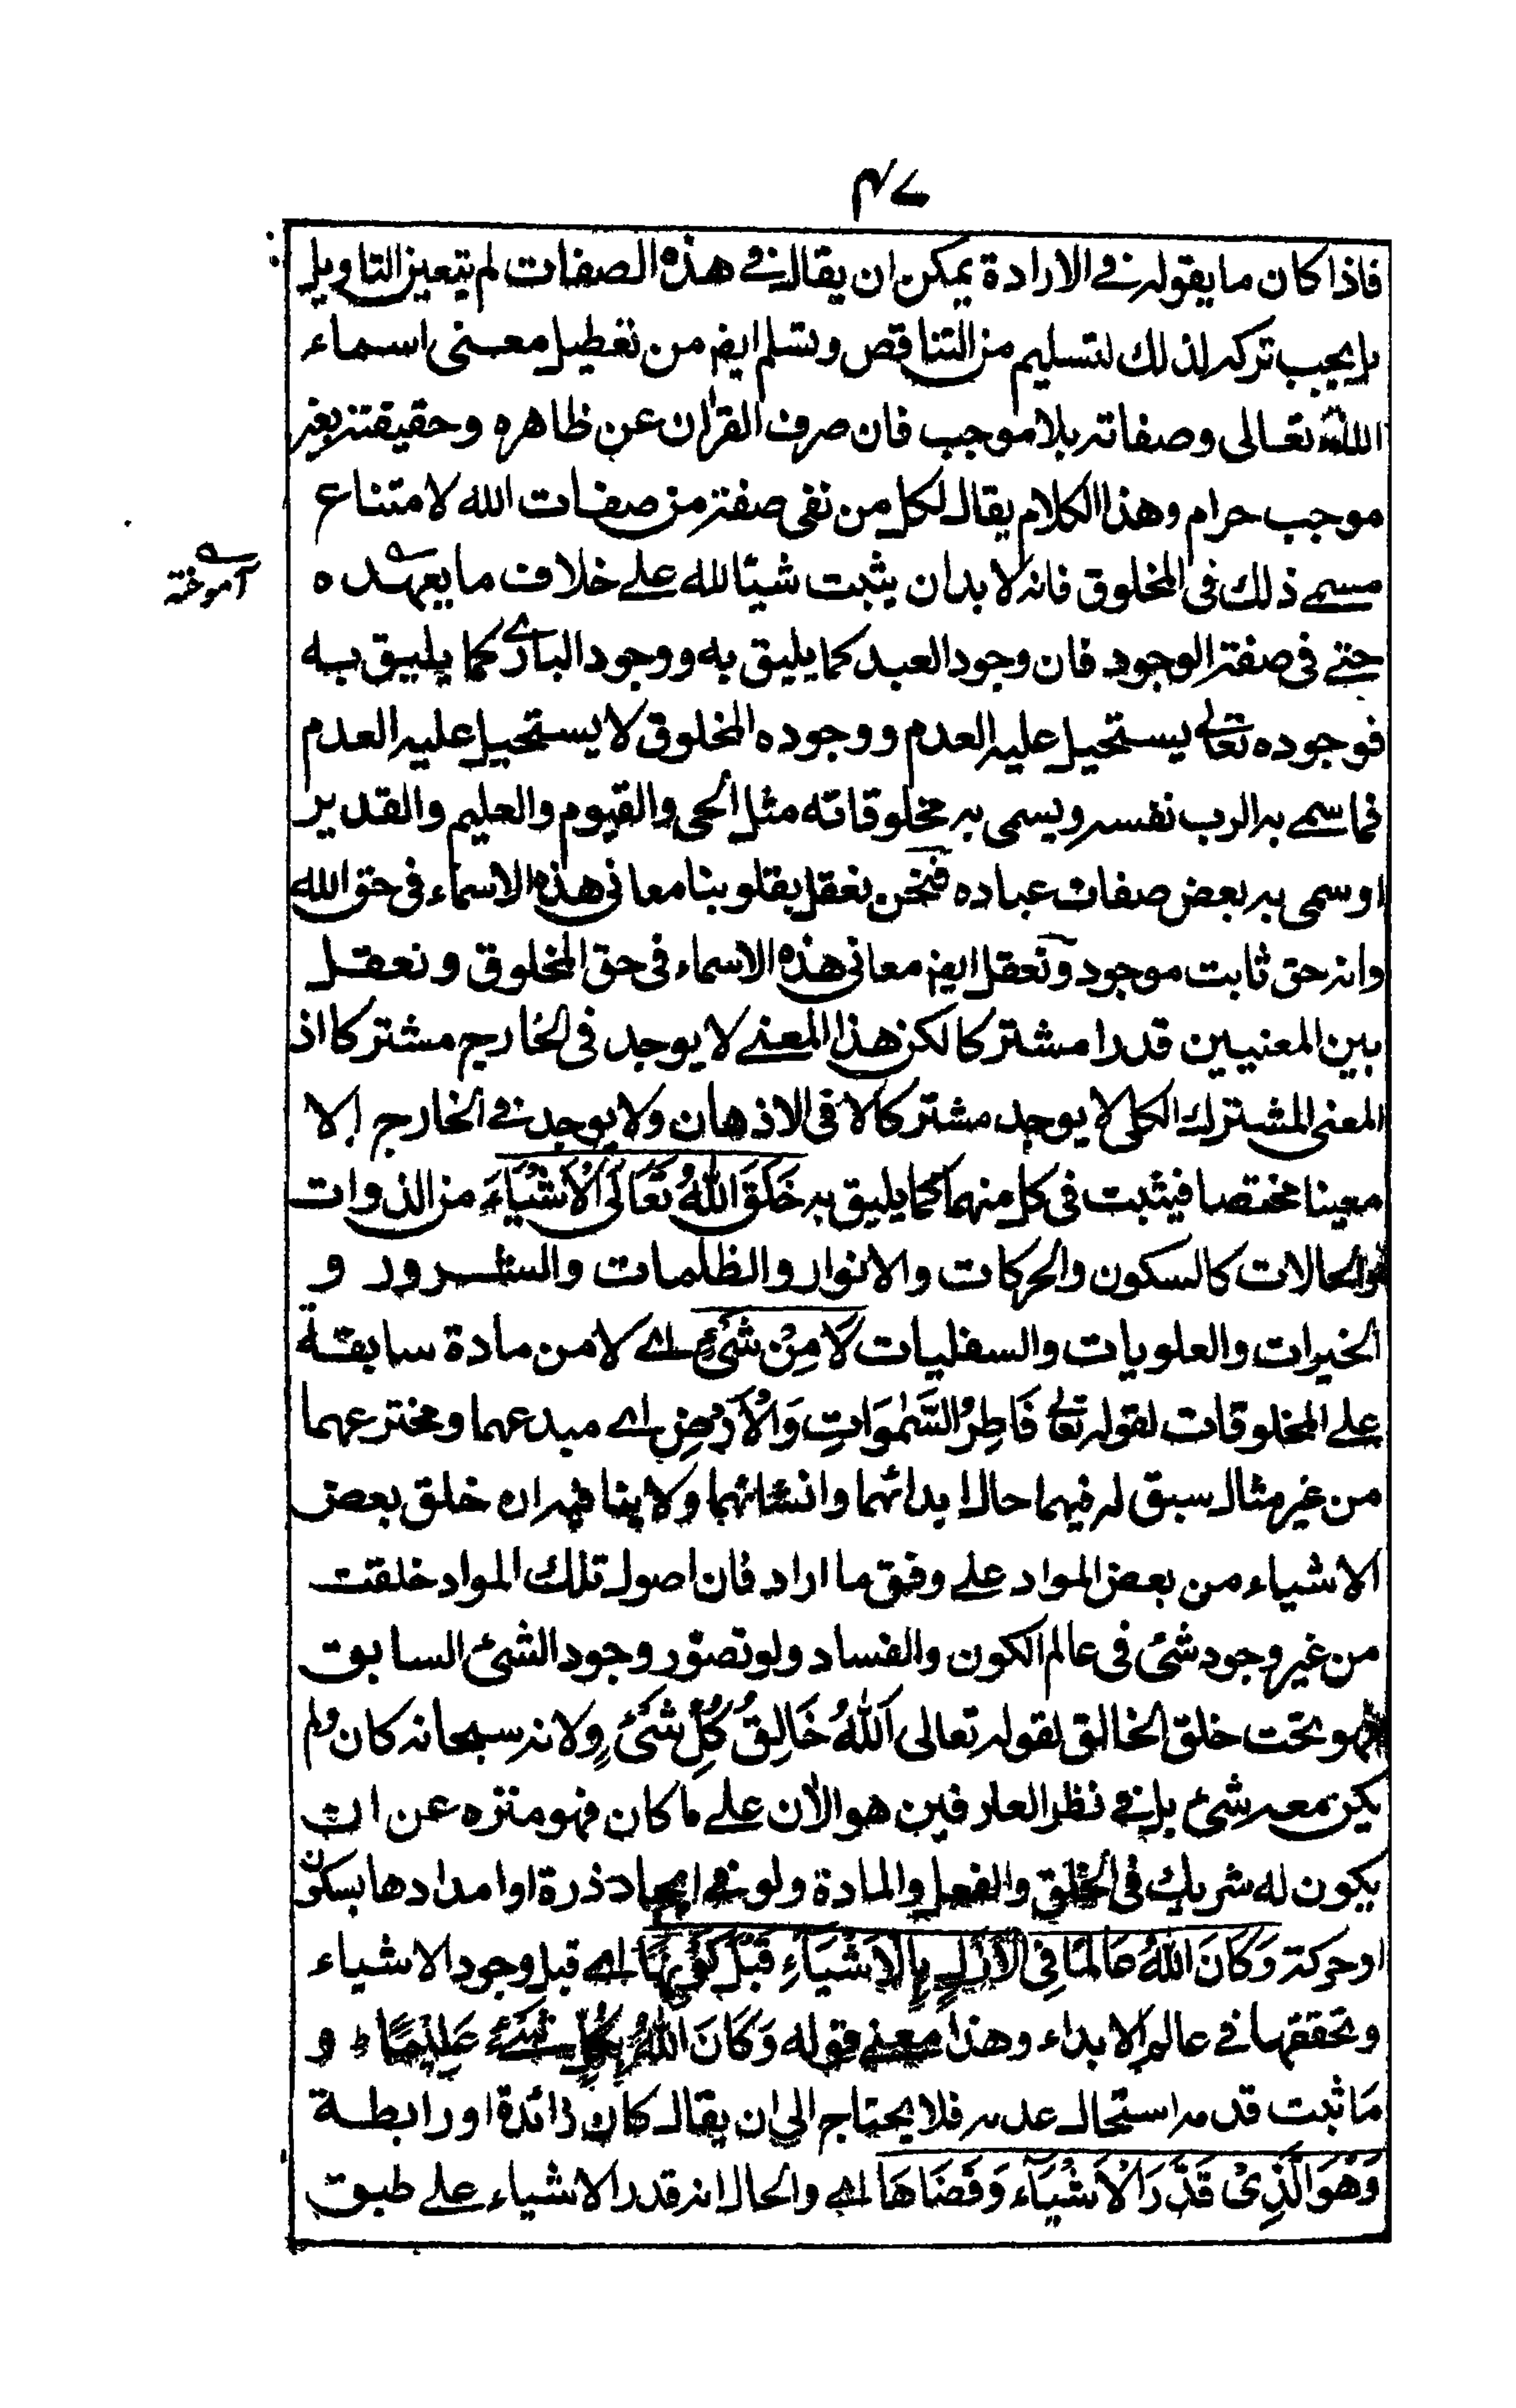 ٤٧
فاذا كان ما يقوله فى الارادة يمكن ان يقال فى هذه الصفات لم يتعين التاويل
بل يجب تركه لذلك لتسليم من التناقص وتسلم ايضا من تعطيل معنى اسماء
الله تعالى وصفاته بلا موجب فان صرف القرآن عن ظاهره وحقيقته بغير
موجب حرام وهذا الكلام يقال لكل من نفى صفة من صفات الله لامتناع
مسمى ذلك فى المخلوق فانه لا بد ان يثبت شيئا لله على خلاف ما يعهده
آموخته
حتى فى صفة الوجود فان وجود العبد كما يليق به ووجود البارى كما يليق به
فوجوده تعالى يستحيل عليه العدم ووجوده المخلوق لا يستحيل عليه العدم
فما سمى به الرب نفسه ويسمى به مخلوقاته مثل الحى والقيوم والعليم والقدير
او سمى به بعض صفات عباده فنحن نعقل بقلوبنا معانى هذه الاسماء فى حق الله
وانه حق ثابت موجود ونعقل ايضا معانى هذه الاسماء فى حق المخلوق ونعقل
بين المعنيين قدرا مشتركا لكن هذا المعنى لا يوجد فى الخارج مشتركا اذ
المعنى المشترك الكلى لا يوجد مشتركا لا فى الاذهان ولا يوجد فى الخارج الا
معينا مختصا فيثبت فى كل منهما كما يليق به خَلَقَ اللهُ تَعَالَى الْاَشْيَاءَ من الذوات
والحالات كالسكون والحركات والانوار والظلمات والشرور و
الخيرات والعلويات والسفليات لَا مِنْ شَىْءٍ اى لا من مادة سابقة
على المخلوقات لقوله تعالى فَاطِرُ السَّمٰوَاتِ وَالْاَرْضِ اى مبدعهما ومخترعهما
من غير مثال سبق له فيهما حال ابدائهما وانشائهما ولا ينافيه ان خلق بعض
الاشياء من بعض المواد على وفق ما اراد فان اصول تلك المواد خلقت
من غير وجود شئ فى عالم الكون والفساد ولو تصوّر وجود الشئ السابق
فهو تحت خلق الخالق لقوله تعالى اَللهُ خَالِقُ كُلِّ شَىْءٍ ولانه سبحانه كان ولم
يكن معه شئ بل فى نظر العارفين هو الآن على ما كان فهو منزه عن ان
يكون له شريك فى الخلق والفعل والمادة ولو فى ايجاد ذرة او امدادها بسكون
او حركة وَكَانَ اللهُ عَالِمًا فِى الْاَزَلِ بِالْاَشْيَاءِ قَبْلَ كَوْنِهَا اى قبل وجود الاشياء
وتحققها فى عالم الابداء وهذا معنى قوله وَكَانَ اللهُ بِكُلِّ شَىْءٍ عَلِيْمًا ط و
مَا ثبت قدمه استحال عدمه فلا يحتاج الى ان يقال كان زائدة او رابطة
وَهُوَ الَّذِىْ قَدَّرَ الْاَشْيَآءَ وَقَضَاهَا اى والحال انه قدر الاشياء على طبق